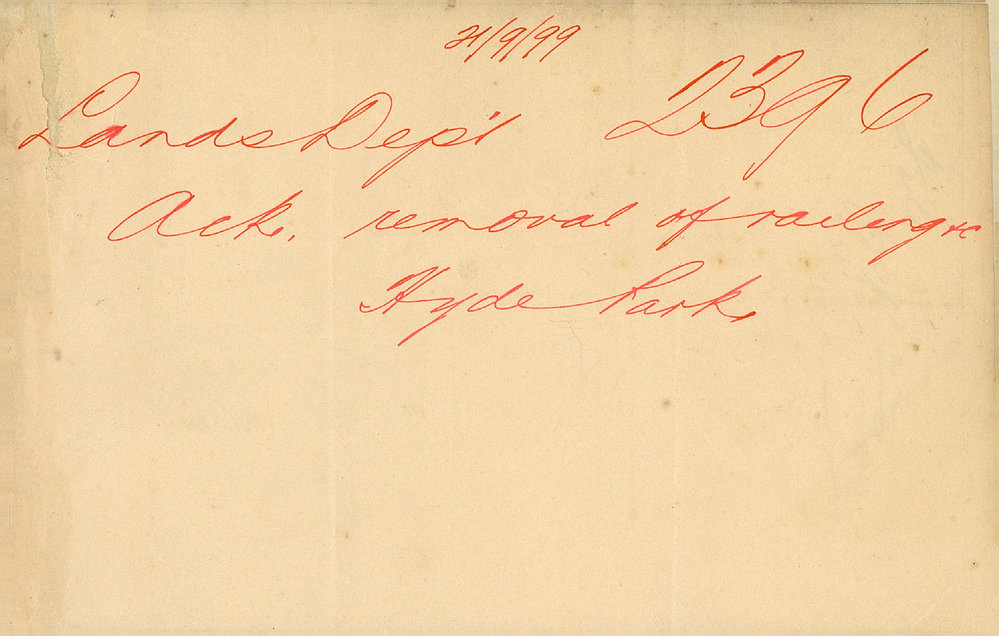 21/9/99
Lands Dep't 2396
Ack. removal of railing &c
Hyde Park.